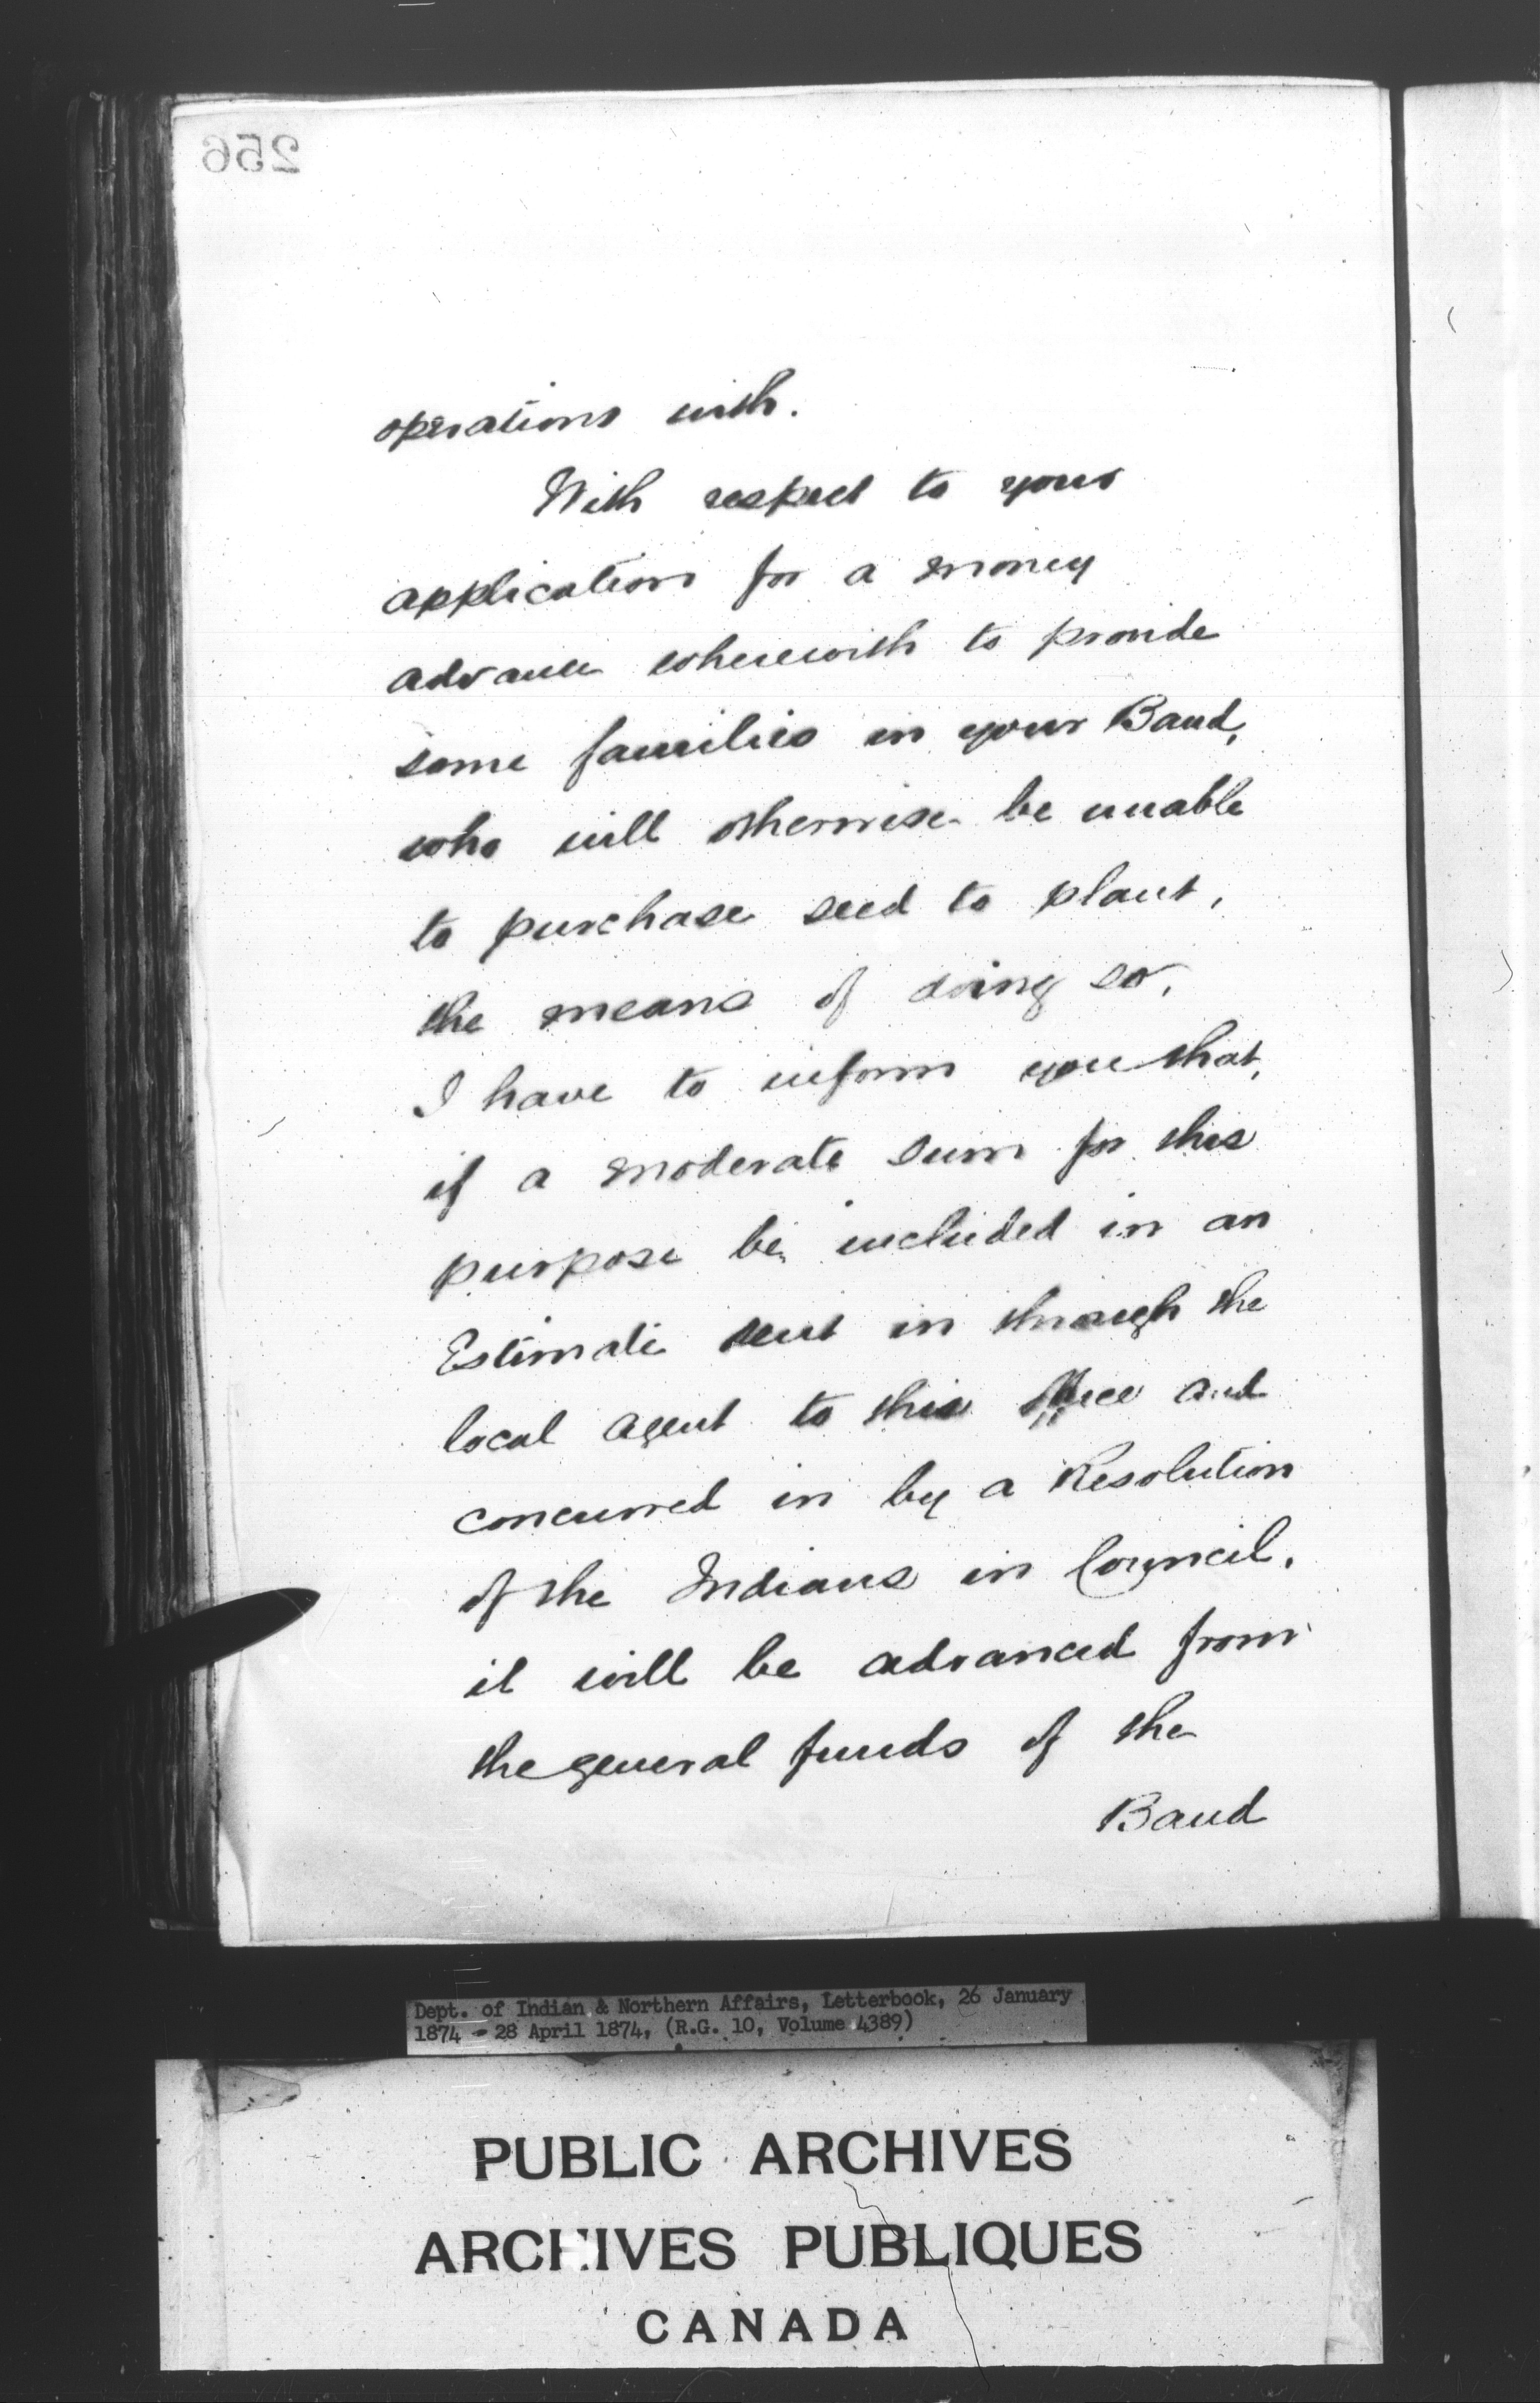 256
operations with.
With respect to your
application for a money
advance wherewith to provide
some families in your Band,
who will otherwise be unable
to purchase seed to plant,
the means of doing so,
I have to inform you that,
if a moderate sum for this
purpose be included in an
Estimate sent in through the
local agent to this Office and
concurred in by a Resolution
of the Indians in Council,
it will be advanced from
the general funds of the
Band
Dept. of Indian & Northern Affairs, Letterbook, 26 January
1874 - 28 April 1874, (R.G. 10, Volume 4389)
PUBLIC ARCHIVES
ARCHIVES PUBLIQUES
CANADA